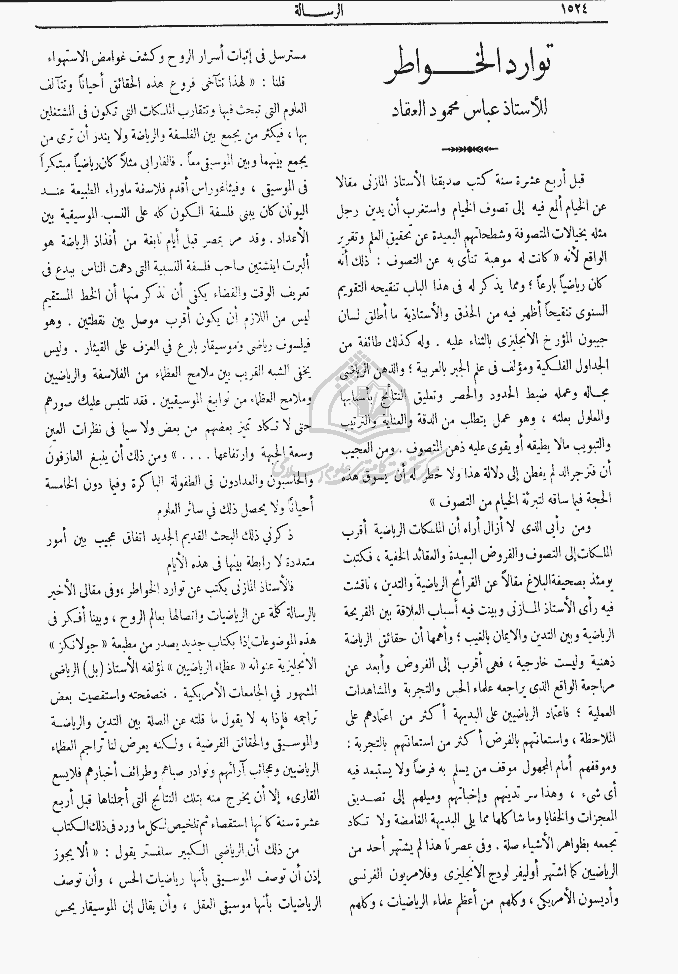 ١٥٢٤
الرسالة
توارد الخواطر
للأستاذ عباس محمود العقاد
قبل أربع عشرة سنة كتب صديقنا الأستاذ المازنى مقالا
عن الخيام ألمع فيه إلى تصوف الخيام واستغرب أن يدين رجل
مثله بخيالات المتصوفة وشطحاتهم البعيدة عن تحقيق العلم وتقرير
الواقع لأنه « كانت له موهبة تنأى به عن التصوف : ذلك أنه
كان رياضياً بارعاً ؛ ومما يذكر له فى هذا الباب تنقيحه التقويم
السنوى تنقيحاً أظهر فيه من الحذق والأستاذية ما أطلق لسان
جيبون المؤرخ الانجليزى بالثناء عليه . وله كذلك طائفة من
الجداول الفلكية ومؤلف فى علم الجبر بالعربية ؛ والذهن الرياضى
مجاله وعمله ضبط الحدود والحصر وتعليق النتائج بأسبابها
والمعلول بعلته ، وهو عمل يتطلب من الدقة والعناية والترتيب
والتبويب مالا يطيقه أو يقوى عليه ذهن المتصوف . ومن العجيب
أن فتزجرالد لم يفطن إلى دلالة هذا ولا خطر له أن يسوق هذه
الحجة فيما ساقه لتبرئة الخيام من التصوف »
ومن رأيى الذى لا أزال أراه أن الملكات الرياضية أقرب
الملكات إلى التصوف والفروض البعيدة والعقائد الخفية ، فكتبت
يومئذ بصحيفة البلاغ مقالاً عن القرائح الرياضية والتدين ، ناقشت
فيه رأى الأستاذ المازنى وبينت فيه أسباب العلاقة بين القريحة
الرياضية وبين التدين والايمان بالغيب ؛ وأهمها أن حقائق الرياضة
ذهنية وليست خارجية ، فهى أقرب إلى الفروض وأبعد عن
مراجعة الواقع الذى يراجعه علماء الحس والتجربة والمشاهدات
العملية ؛ فاعتماد الرياضيين على البديهة أكثر من اعتمادهم على
الملاحظة ، واستعانتهم بالفرض أكثر من استعانتهم بالتجربة :
وموقفهم أمام المجهول موقف من يسلم به فرضاً ولا يستبعد فيه
أى شىء ، وهذا سر تدينهم وإخباتهم وميلهم إلى تصديق
المعجزات والخفايا وما شاكلها مما يلى البديهة الغامضة ولا تكاد
تجمعه بظواهر الأشياء صلة . وفى عصرنا هذا لم يشتهر أحد من
الرياضيين كما اشتهر أوليفر لودج الانجليزى وفلامريون الفرنسى
وأديسون الأمريكى ، وكلهم من أعظم علماء الرياضيات ، وكلهم
مسترسل فى إثبات أسرار الروح وكشف غوامض الاستهواء
قلنا : « لهذا تتآخى فروع هذه الحقائق أحياناً وتتآلف
العلوم التى تبحث فيها وتتقارب الملكات التى تكون فى المشتغلين
بها ، فيكثر من يجمع بين الفلسفة والرياضة ولا يندر أن ترى من
يجمع بينهما وبين الموسيقى معاً . فالفارابى مثلاً كان رياضياً مبتكراً
فى الموسيقى ، وفيثاغوراس أقدم فلاسفة ماوراء الطبيعة عند
اليونان كان يبنى فلسفة الكون كله على النسب الموسيقية بين
الأعداد . وقد مر بمصر قبل أيام نابغة من أفذاذ الرياضة هو
ألبرت اينشتين صاحب فلسفة النسبية التى دهمت الناس ببدع فى
تعريف الوقت والفضاء يكفى أن نذكر منها أن الخط المستقيم
ليس من اللازم أن يكون أقرب موصل بين نقطتين . وهو
فيلسوف رياضى وموسيقار بارع فى العزف على القيثار . وليس
يخفى الشبه القريب بين ملامح العظماء من الفلاسفة والرياضيين
وملامح العظماء من نوابغ الموسيقيين . فقد تلتبس عليك صورهم
حتى لا تكاد تميز بعضهم من بعض ولا سيما فى نظرات العين
وسعة الجبهة وارتفاعها .... » ومن ذلك أن ينبغ العازفون
والحاسبون والعدادون فى الطفولة الباكرة وفيما دون الخامسة
أحياناً ولا يحصل ذلك فى سائر العلوم
ذكرنى ذلك البحث القديم الجديد اتفاق عجيب بين أمور
متعددة لا رابطة بينها فى هذه الأيام
فالأستاذ المازنى يكتب عن توارد الخواطر ، وفى مقالى الأخير
بالرسالة كلمة عن الرياضيات واتصالها بعالم الروح ، وبينا أفكر فى
هذه الموضوعات إذا بكتاب جديد يصدر من مطبعة « جولانكز »
الانجليزية عنوانه « عظماء الرياضيين » لمؤلفه الأستاذ (بل) الرياضى
المشهور فى الجامعات الأمريكية . فتصفحته واستقصيت بعض
تراجمه فإذا به لا يقول ما قلته عن الصلة بين التدين والرياضة
والموسيقى والحقائق الفرضية ، ولكنه يعرض لنا تراجم العظماء
الرياضيين وعجائب آرائهم ونوادر صباهم وطرائف أخبارهم فلا يسع
القارىء إلا أن يخرج منه بتلك النتائج التى أجملناها قبل أربع
عشرة سنة كأنها استقصاء ثم تلخيص لكل ما ورد فى ذلك الكتاب
من ذلك أن الرياضى الكبير سلفستر يقول : « ألا يجوز
إذن أن توصف الموسيقى بأنها رياضيات الحس ، وأن توصف
الرياضيات بأنها موسيقى العقل ، وأن يقال إن الموسيقار يحس